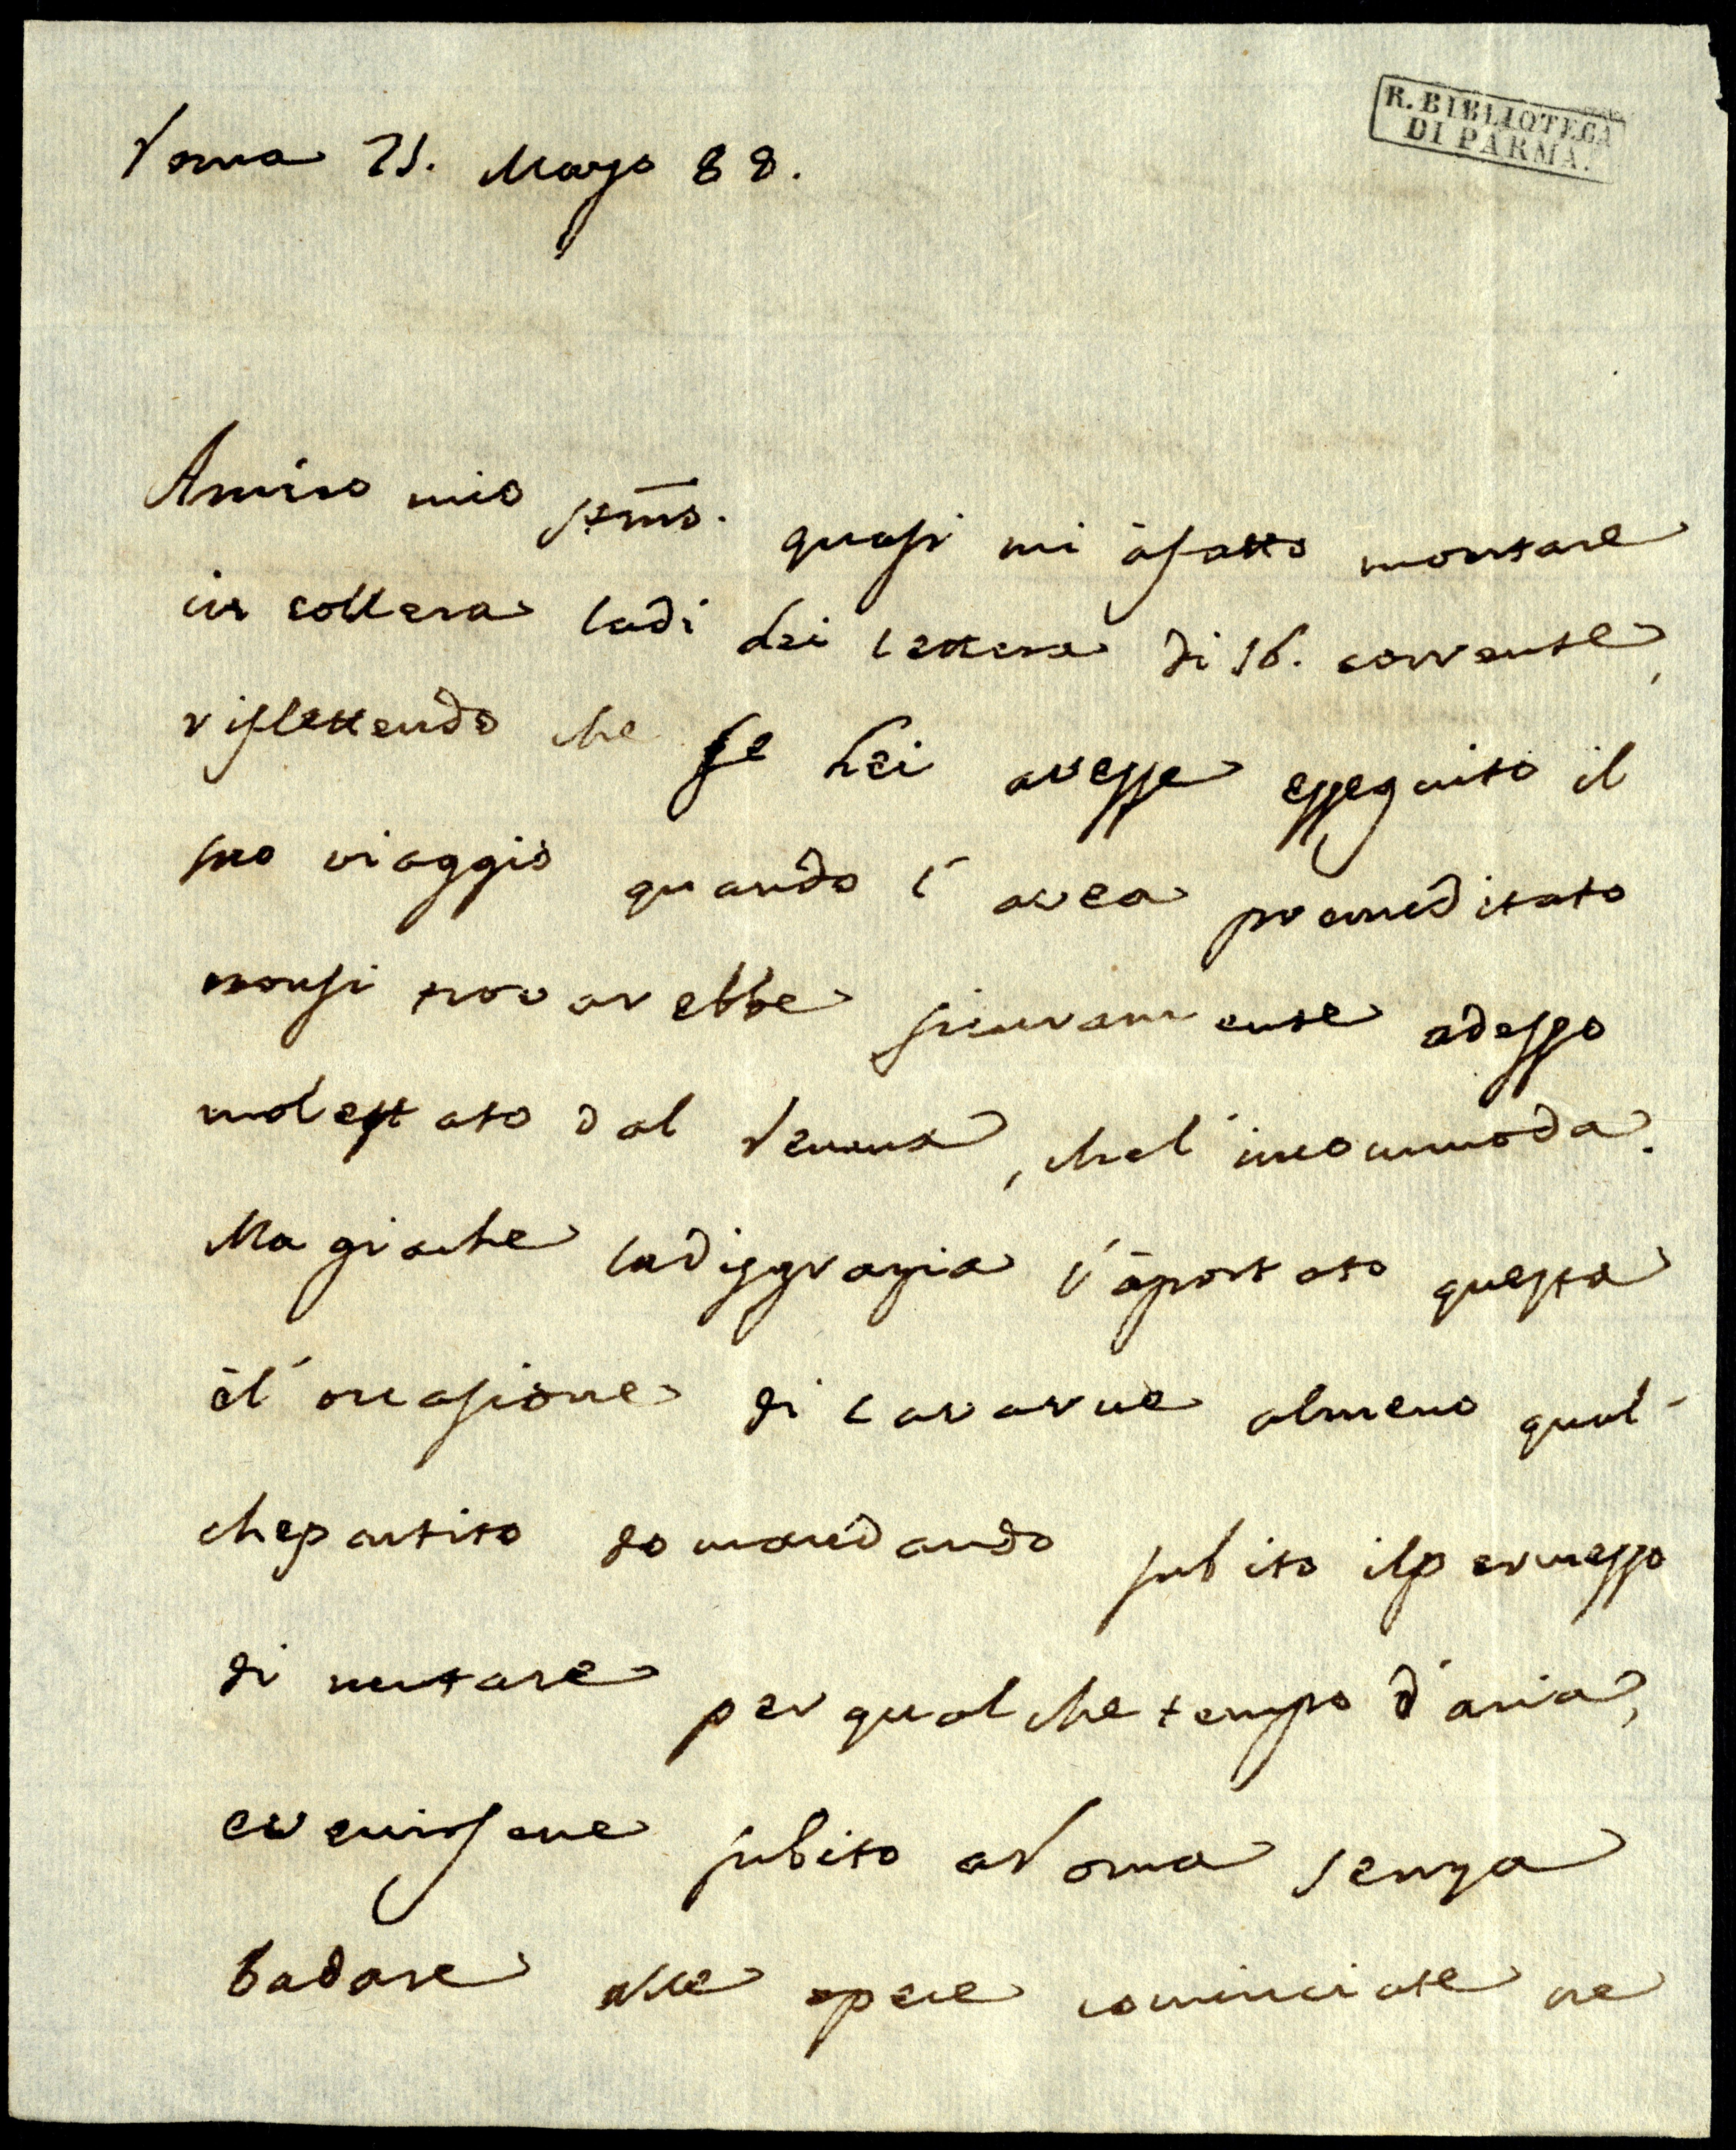 R. BIBLIOTECA
DI PARMA.
Roma 25. Marzo 88.
Amico mio stmo. quasi mi à fatto montare
in collera la di Lei lettera di 16. corrente,
riflettendo che se Lei avesse esseguito il
suo viaggio quando l'avea premeditato
non si trovarebbe sicuramente adesso
molestato dal Reuma, che l'incommoda.
Ma giache la disgrazia l'à portato questa
è l'occasione di cavarne almeno qual-
che partito domandando subito il permesso
di mutare per qualche tempo d'aria,
e venirsene subito a Roma senza
badare alle opere cominciate ne